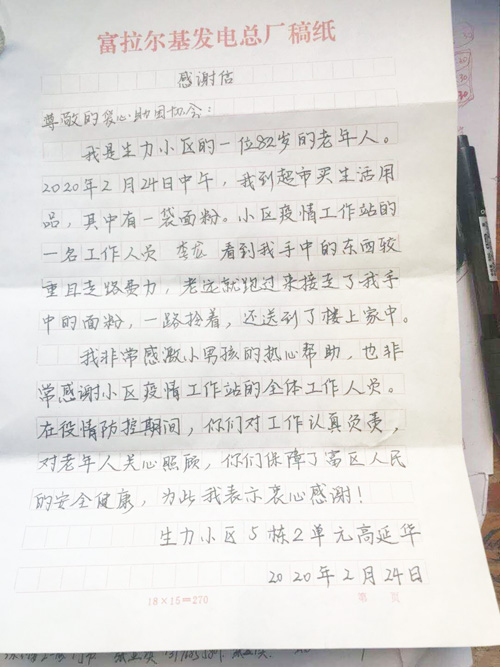 富拉尔基发电总厂稿纸
感谢信
尊敬的爱心助困协会:
我是生力小区的一位82岁的老年人。
2020年2月24日中午,我到超市买生活用
品,其中有一袋面粉。小区疫情工作站的
一名工作人员 看到我手中的东西较
重且走路费力,老远就跑过来接走了我手
中的面粉,一路拎着,还送到了楼上家中。
我非常感激小男孩的热心帮助,也非
常感谢小区疫情工作站的全体工作人员。
在疫情防控期间,你们对工作认真负责,
对老年人关心照顾,你们保障了富区人民
的安全健康,为此我表示衷心感谢!
生力小区5栋2单元高延华
2020年2月24日
18×15=270
第 页